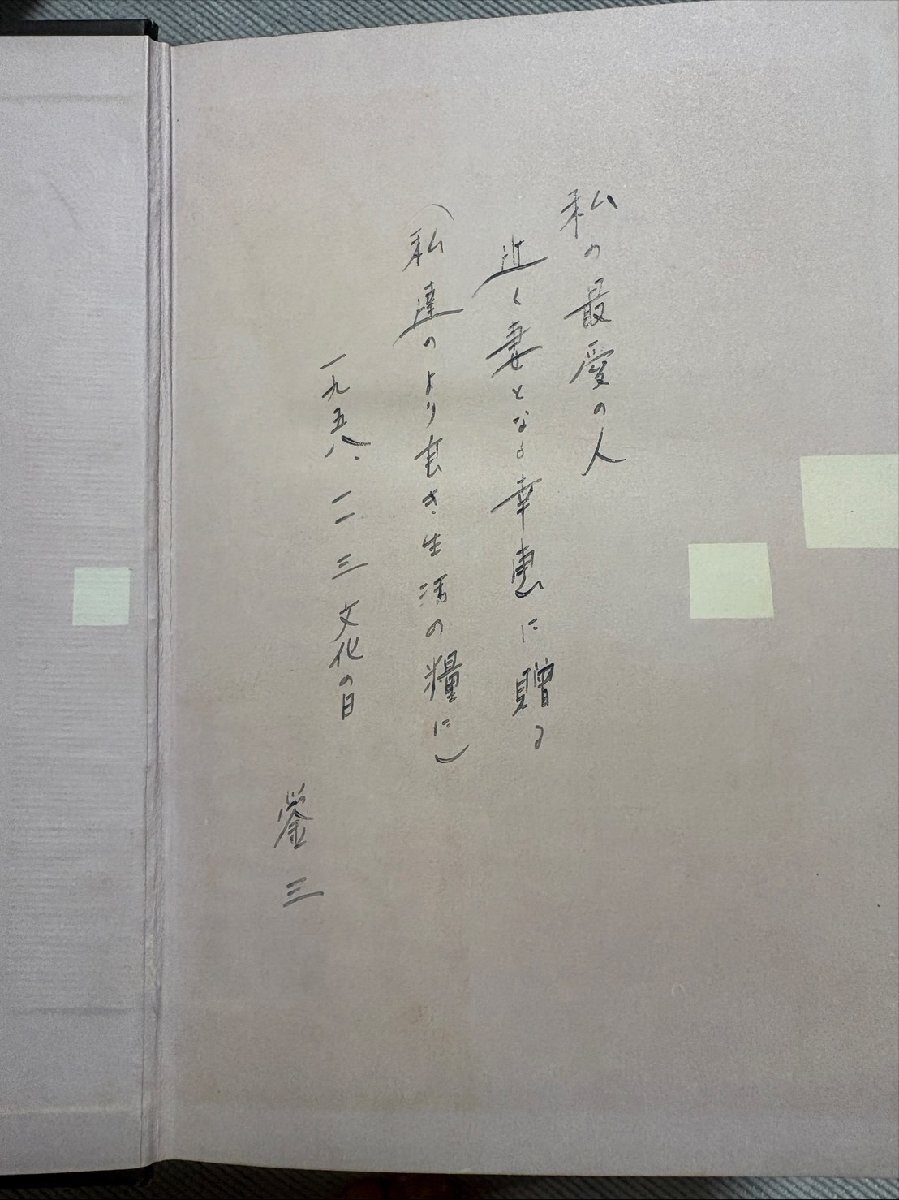 私の最愛の人
近く妻となる幸恵に贈る
(私達のより良き生活の糧に)
一九五八、一一 三 文化の日
三